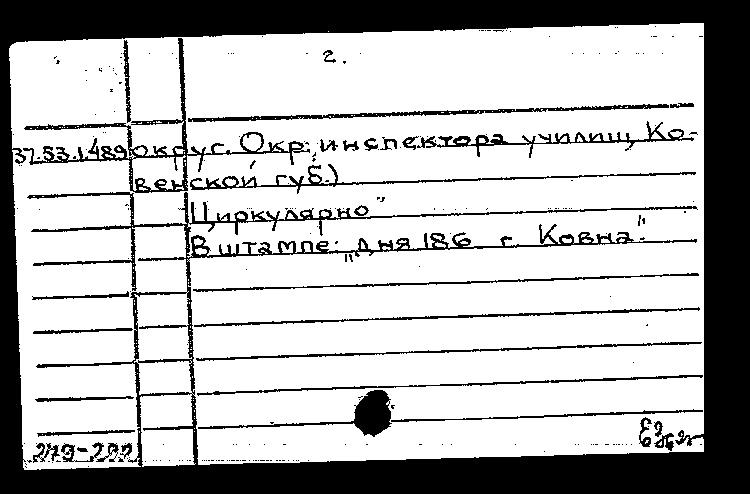 2.
37.53.1.489 округ. Окр. инспектора училищ Ко-
венской губ.)
Циркулярно"
В штампе: "дня 186 г. Ковна."
279-292